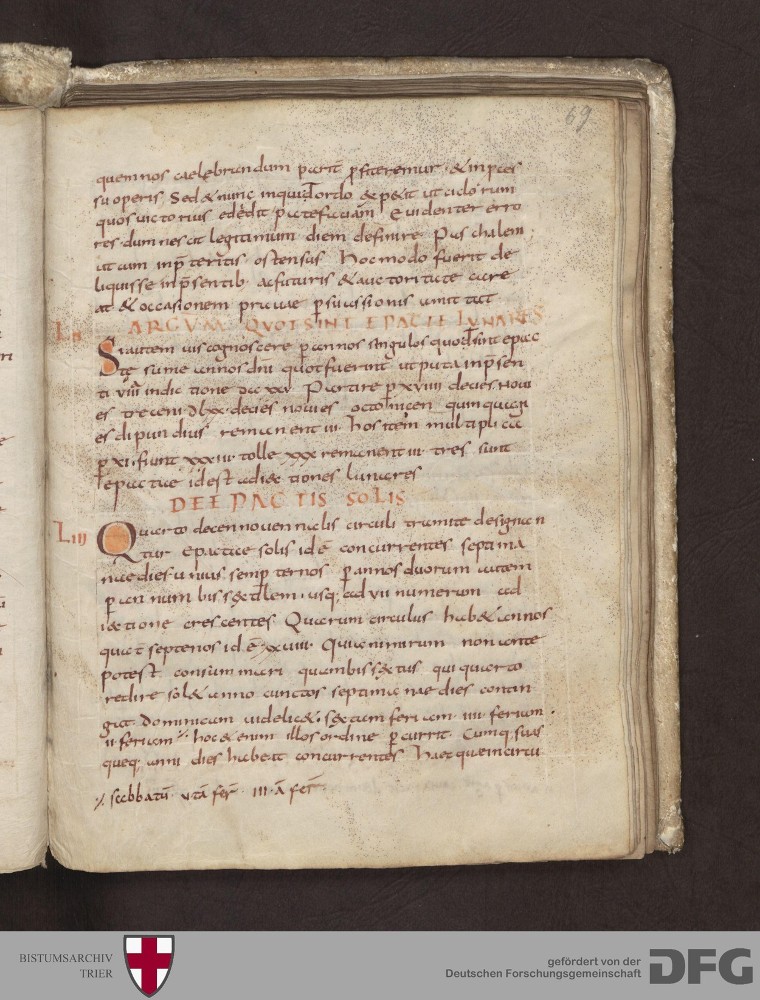 69
quem nos caelebrandum parit̄ ꝓfiteremur · & inp̄ces
su operis Sed & nunc inquid̄ ordo &pe&it ut ciclorum
quos victorius edędit patefaciam Euidenter erro
res · dum nescit legitimum diem definire · Paschalem
ut cum inp̄teritis ostensus Hoc modo fuerit de
liquisse inp̄sentib · ac futuris & auctoritate care
at & occasionem prauae ꝑsuassionis amittat
LII ARGUM QUOT SINT EPACTE LUNARES
Si autem uis cognoscere ꝑ annos singulos quod sint epac
tę sume annos dn̄i quot fuerint ut puta inp̄sen
ti VIIII indictione dcc xxv Partire ꝑ xviiii decies noui
es treceni · dlxx · decies nouies octo uicen quinquagi
es di pundius remanent iii · hos item multiplica
ꝑ xi · fiunt xxxiii · tolle xxx remanent iii · tres sunt
epactae id est adiectiones lunares
DE EPACTIS SOLIS
LIII Quarto decennouenalis circuli tramite designan
tur epactae solis id ē concurrentes septima
nae dies · a nuis semp ternos ꝑ annos duorum autem
ꝑ annum bissextilem · usq; ad vii numerum ad
iectione crescentes · Quorum circulus hab& annos
quat̄ septenos id ē xxviii · Quia nimirum non ante
potest consummari quam bissextus qui quarto
redire sol& anno cunctos septimanae dies contin
gat · dominicum uidelic& · sextam feriam · iiii · feriam ·
ii · feriam ⁒ hoc &enim illos ordine ꝑcurrit · Cumq; suas
queq; anni dies habeat concurrentes haec quae in circu
⁒ sabbatū · v tā fer̄ · iii · ā fer̄
BISTUMSARCHIV
TRIER
gefördert von der
Deutschen Forschungsgemeinschaft
DFG